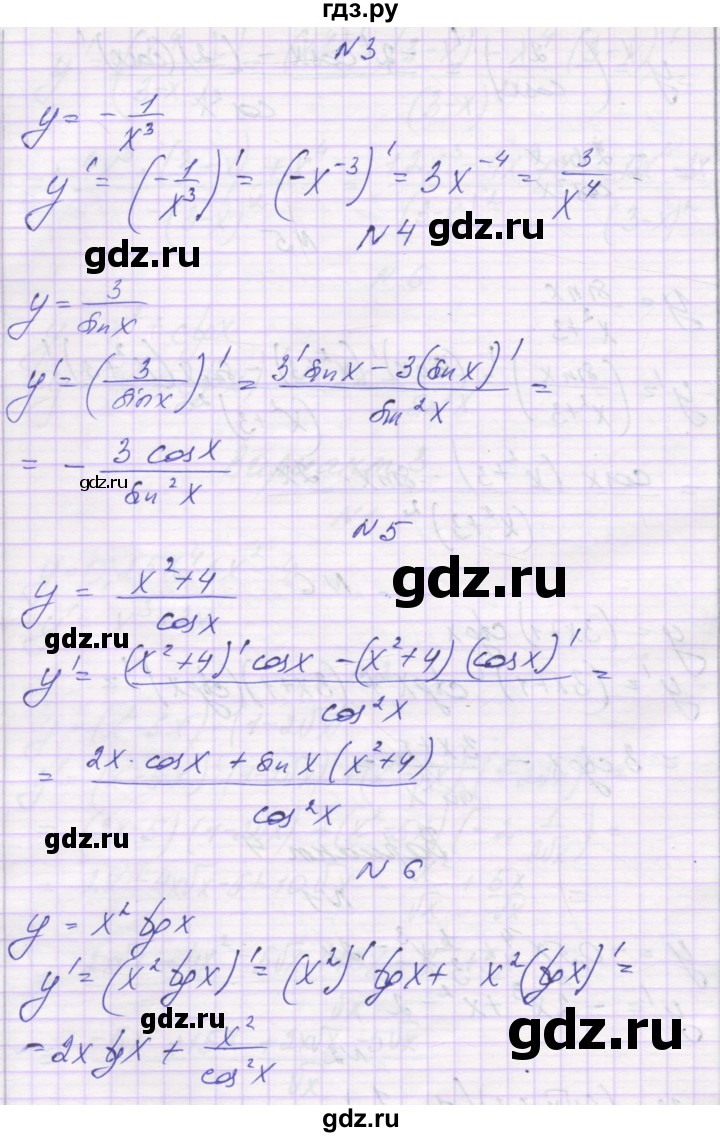 гдз.ру
N3
y = - 1/x³
y' = (- 1/x³)' = (-x⁻³)' = 3x⁻⁴ = 3/x⁴
gdz.ru
N4
gdz.ru
y = 3/sinx
y' = (3/sinx)' = (3' sinx - 3(sinx)')/sin²x =
= - 3 cosx/sin²x
gdz.ru
N5
gdz.ru
y = (x²+4)/cosx
gdz.ru
y' = ((x²+4)' cosx - (x²+4)(cosx)')/cos²x =
= (2x · cosx + sinx(x²+4))/cos²x
gdz.ru
gdz.ru
N6
y = x² tgx
y' = (x² tgx)' = (x²)' tgx + x²(tgx)' =
gdz.ru
gdz.ru
= 2x tgx + x²/cos²x
gdz.ru